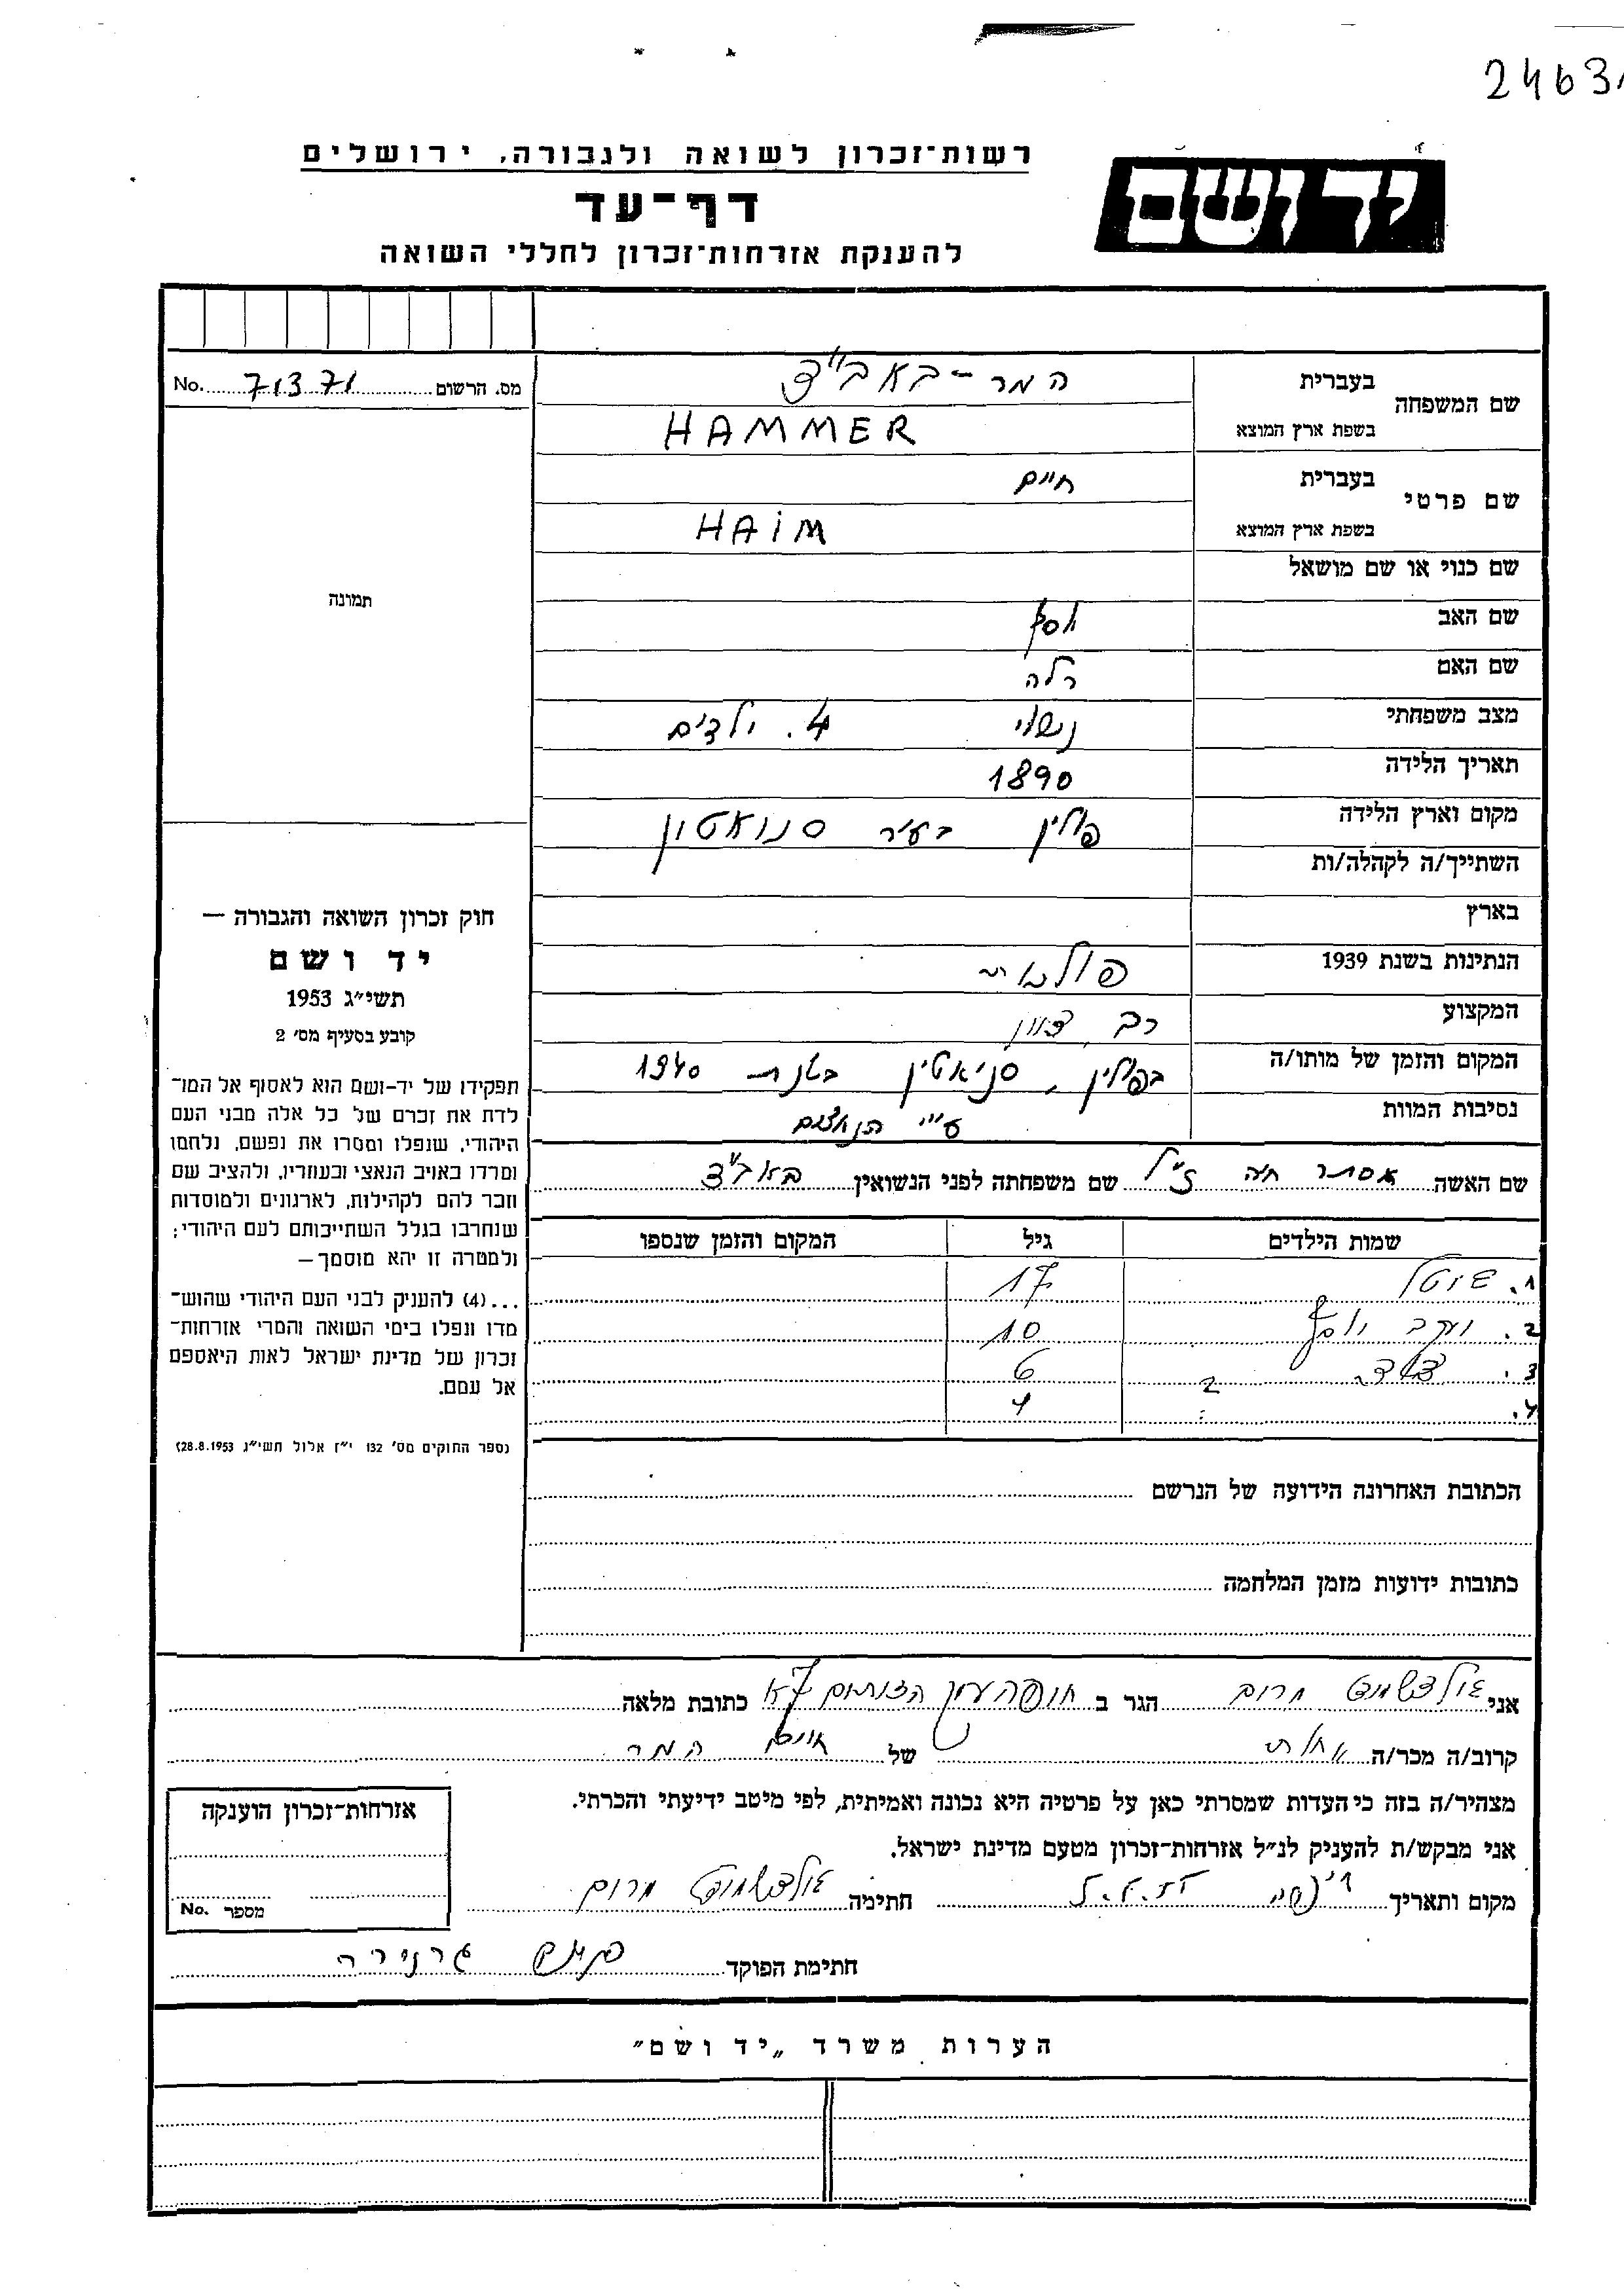 2463
רשות־זכרון לשואה ולגבורה, ירושלים
יד ושם
דף־עד
להענקת אזרחות־זכרון לחללי השואה
מס. הרשום No. 71371
תמונה
שם המשפחה בעברית המר - באב"ד
בשפת ארץ המוצא HAMMER
שם פרטי בעברית חיים
בשפת ארץ המוצא HAIM
שם כנוי או שם מושאל
שם האב יוסף
שם האם רלה
מצב משפחתי נשוי 4. ילדים
תאריך הלידה 1890
מקום וארץ הלידה פולין בעיר סנואטון
השתייך/ה לקהלה/ות
בארץ
הנתינות בשנת 1939 פולנית
המקצוע רב
המקום והזמן של מותו/ה בפולין, סניאטין בשנת 1940
נסיבות המוות ע"י הנאצים
שם האשה אסתר חיה ז"ל שם משפחתה לפני הנשואין באב"ד
שמות הילדים גיל המקום והזמן שנספו
1. 17
2. יעקב וולף 10
3. 6
4. 4
הכתובת האחרונה הידועה של הנרשם
כתובות ידועות מזמן המלחמה
חוק זכרון השואה והגבורה —
יד ושם
תשי״ג 1953
קובע בסעיף מס׳ 2
תפקידו של יד־ושם הוא לאסוף אל המו־
לדת את זכרם של כל אלה מבני העם
היהודי, שנפלו ומסרו את נפשם, נלחמו
ומרדו באויב הנאצי ובעוזריו, ולהציב שם
וזכר להם לקהילות, לארגונים ולמוסדות
שנחרבו בגלל השתייכותם לעם היהודי;
ולמטרה זו יהא מוסמך—
...(4) להעניק לבני העם היהודי שהוש־
מדו ונפלו בימי השואה והמרי אזרחות־
זכרון של מדינת ישראל לאות היאספם
אל עמם.
(ספר החוקים מס׳ 132 י״ז אלול תשי״ג 28.8.1953)
אני גולדשמיט מרים הגר ב כתובת מלאה
קרוב/ה מכר/ה אחות של חיים המר
מצהיר/ה בזה כי העדות שמסרתי כאן על פרטיה היא נכונה ואמיתית, לפי מיטב ידיעתי והכרתי.
אני מבקש/ת להעניק לנ״ל אזרחות־זכרון מטעם מדינת ישראל.
מקום ותאריך חתימה גולדשמיט מרים
חתימת הפוקד
אזרחות־זכרון הוענקה
מספר No.
הערות משרד „יד ושם״